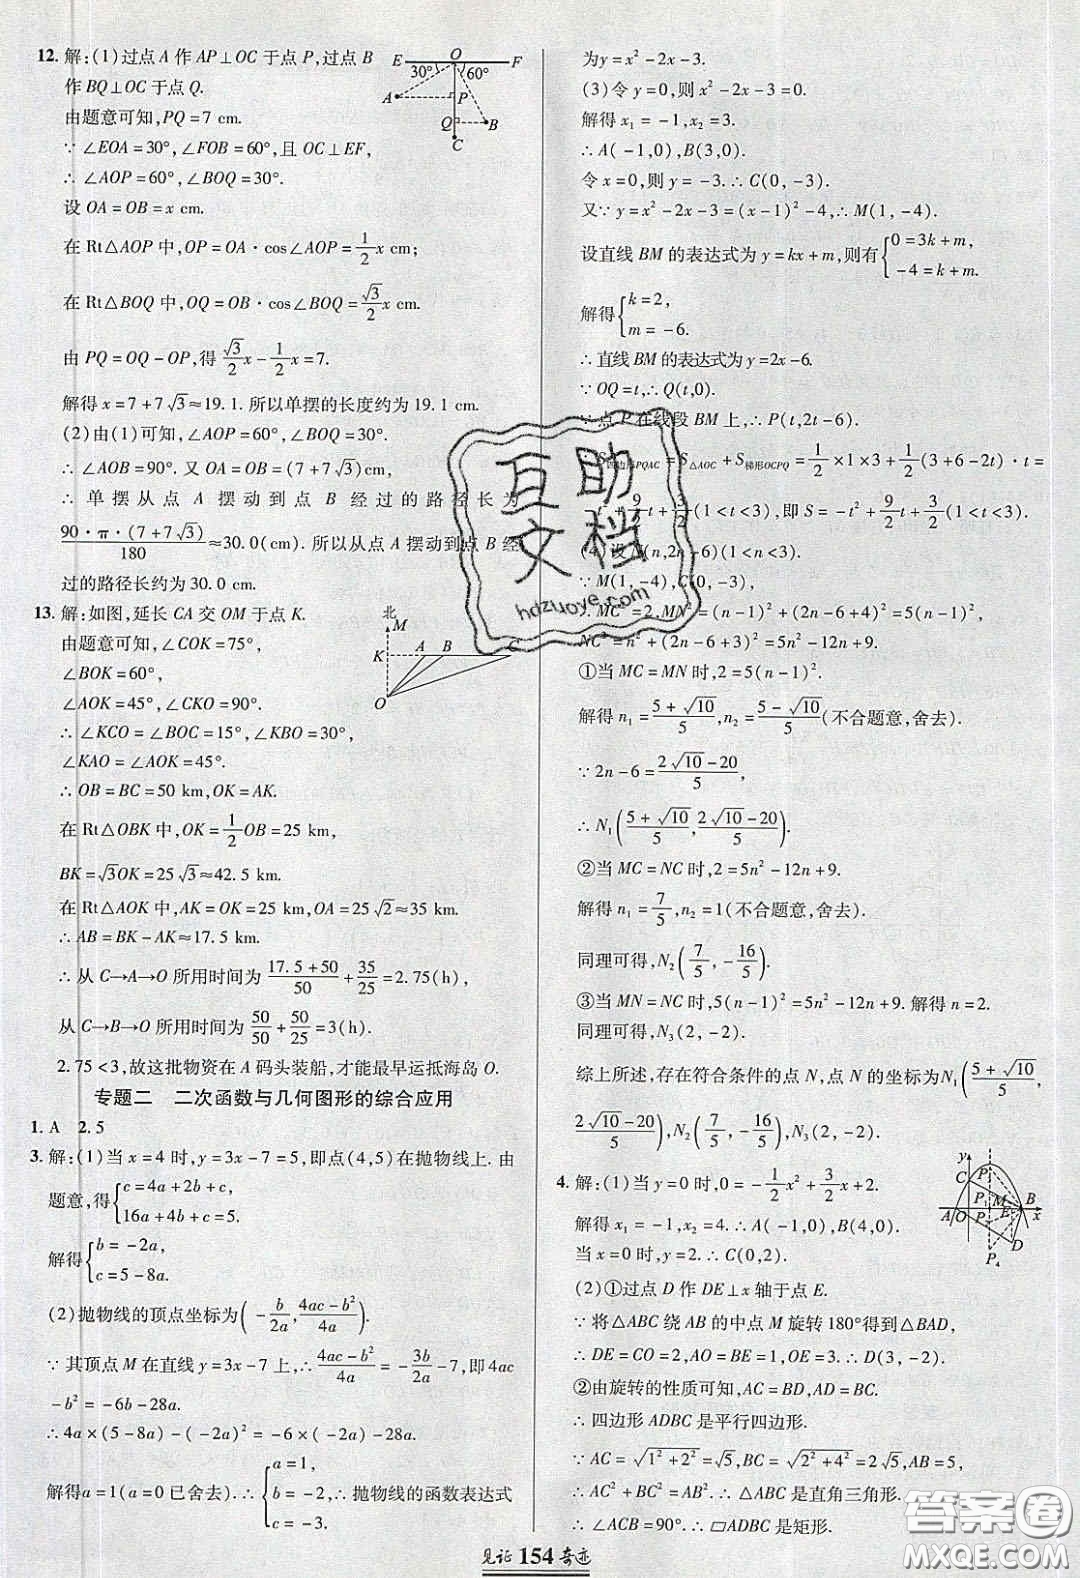 12. 解:(1)过点 A 作 AP⊥OC 于点 P,过点 B
作 BQ⊥OC 于点 Q.
由题意可知,PQ=7 cm.
∵∠EOA=30°,∠FOB=60°,且 OC⊥EF,
∴∠AOP=60°,∠BOQ=30°.
设 OA=OB=x cm.
在 Rt△AOP 中,OP=OA·cos∠AOP=1/2 x cm;
在 Rt△BOQ 中,OQ=OB·cos∠BOQ=√3/2 x cm.
由 PQ=OQ-OP,得 √3/2 x-1/2 x=7.
解得 x=7+7√3≈19.1. 所以单摆的长度约为 19.1 cm.
(2)由(1)可知,∠AOP=60°,∠BOQ=30°.
∴∠AOB=90°. 又 OA=OB=(7+7√3) cm.
∴ 单摆从点 A 摆动到点 B 经过的路径长为
90·π·(7+7√3)/180≈30.0(cm). 所以从点 A 摆动到点 B 经
过的路径长约为 30.0 cm.
E O F
30° 60°
A P
Q B
C
13. 解:如图,延长 CA 交 OM 于点 K.
由题意可知,∠COK=75°,
∠BOK=60°,
∠AOK=45°,∠CKO=90°.
∴∠KCO=∠BOC=15°,∠KBO=30°,
∠KAO=∠AOK=45°.
∴OB=BC=50 km,OK=AK.
在 Rt△OBK 中,OK=1/2 OB=25 km,
BK=√3OK=25√3≈42.5 km.
在 Rt△AOK 中,AK=OK=25 km,OA=25√2≈35 km.
∴AB=BK-AK≈17.5 km.
∴从 C→A→O 所用时间为 (17.5+50)/50+35/25=2.75(h),
从 C→B→O 所用时间为 50/50+50/25=3(h).
2.75<3,故这批物资在 A 码头装船,才能最早运抵海岛 O.
北
M
K A B C
O
专题二 二次函数与几何图形的综合应用
1. A 2. 5
3. 解:(1)当 x=4 时,y=3x-7=5,即点(4,5)在抛物线上. 由
题意,得{c=4a+2b+c,
16a+4b+c=5.
解得{b=-2a,
c=5-8a.
(2)抛物线的顶点坐标为(-b/2a,(4ac-b²)/4a).
∵其顶点 M 在直线 y=3x-7 上,∴(4ac-b²)/4a=-3b/2a-7,即 4ac
-b²=-6b-28a.
∴4a×(5-8a)-(-2a)²=-6×(-2a)-28a.
解得 a=1(a=0 已舍去). ∴{a=1,
b=-2,
c=-3.
∴抛物线的函数表达式
为 y=x²-2x-3.
(3)令 y=0,则 x²-2x-3=0.
解得 x₁=-1,x₂=3.
∴A(-1,0),B(3,0).
令 x=0,则 y=-3. ∴C(0,-3).
又∵y=x²-2x-3=(x-1)²-4,∴M(1,-4).
设直线 BM 的表达式为 y=kx+m,则有{0=3k+m,
-4=k+m.
解得{k=2,
m=-6.
∴直线 BM 的表达式为 y=2x-6.
∵OQ=t,∴Q(t,0).
∵点 P 在线段 BM 上,∴P(t,2t-6).
PQAC=S△AOC+S梯形OCPQ=1/2×1×3+1/2(3+6-2t)·t=
t+3/2(1<t<3),即 S=-t²+9/2 t+3/2(1<t<3).
(n,2n-6)(1<n<3).
∵M(1,-4),C(0,-3),
MC²=2,MN²=(n-1)²+(2n-6+4)²=5(n-1)²,
NC²=n²+(2n-6+3)²=5n²-12n+9.
①当 MC=MN 时,2=5(n-1)².
解得 n₁=(5+√10)/5,n₂=(5-√10)/5(不合题意,舍去).
∵2n-6=(2√10-20)/5,
∴N₁((5+√10)/5,(2√10-20)/5).
②当 MC=NC 时,2=5n²-12n+9.
解得 n₁=7/5,n₂=1(不合题意,舍去).
同理可得,N₂(7/5,-16/5).
③当 MN=NC 时,5(n-1)²=5n²-12n+9. 解得 n=2.
同理可得,N₃(2,-2).
综上所述,存在符合条件的点 N,N₁((5+√10)/5,
(2√10-20)/5),N₂(7/5,-16/5),N₃(2,-2).
4. 解:(1)当 y=0 时,0=-1/2 x²+3/2 x+2.
解得 x₁=-1,x₂=4. ∴A(-1,0),B(4,0).
当 x=0 时,y=2. ∴C(0,2).
(2)①过点 D 作 DE⊥x 轴于点 E.
∵将△ABC 绕 AB 的中点 M 旋转 180°得到△BAD,
∴DE=CO=2,AO=BE=1,OE=3. ∴D(3,-2).
②由旋转的性质可知,AC=BD,AD=BC.
∴四边形 ADBC 是平行四边形.
∵AC=√(1²+2²)=√5,BC=√(2²+4²)=2√5,AB=5.
∴AC²+BC²=AB². ∴△ABC 是直角三角形.
∴∠ACB=90°. ∴▱ADBC 是矩形.
互助
文档
hdzuoye.com
见证 154 奇迹
答案圈
MXQE.COM